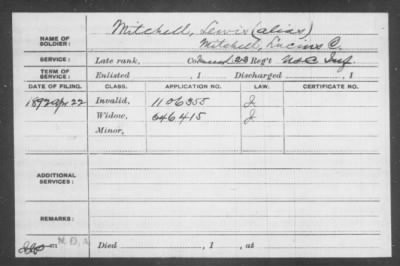 NAME OF SOLDIER: Mitchell, Lewis (alias)
Mitchell, Lucius C.
SERVICE: Late rank, Co. 23 Reg't U.S.C. Inf.
TERM OF SERVICE: Enlisted , 1 Discharged , 1
DATE OF FILING. CLASS. APPLICATION NO. LAW. CERTIFICATE NO.
1892 Apr 22 Invalid, 1106355 J
Widow, 646415 J
Minor,
ADDITIONAL SERVICES:
REMARKS:
Died , 1 , at